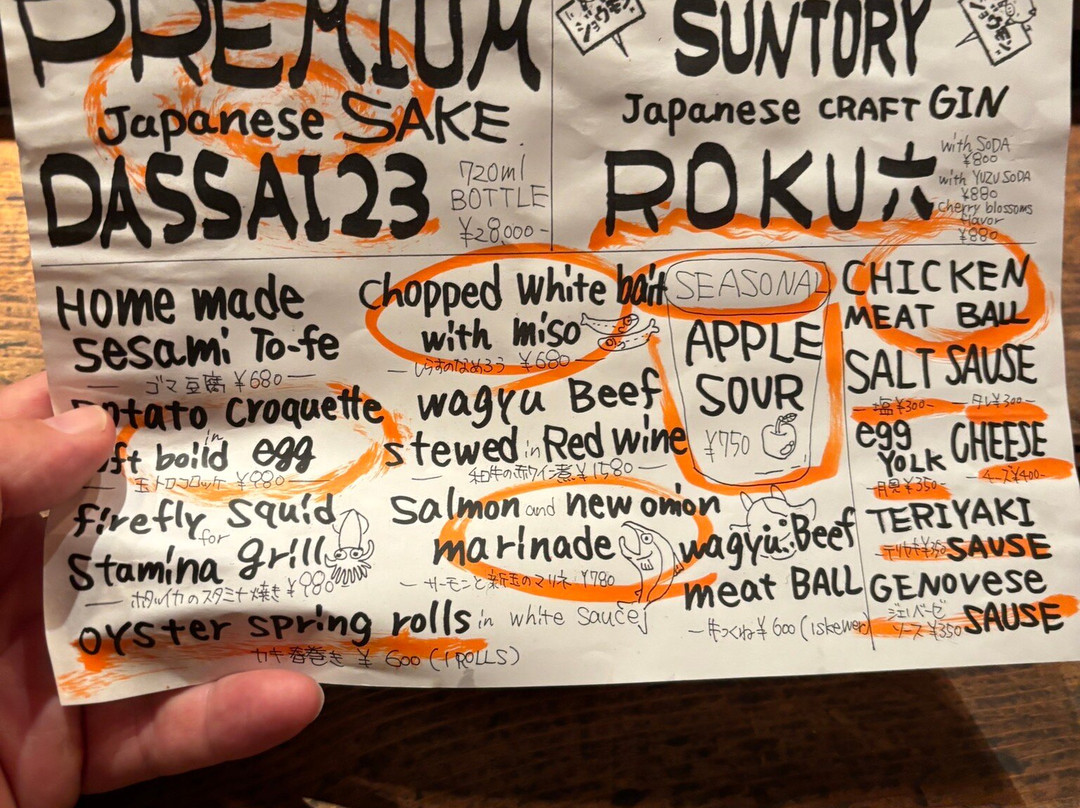 PREMIUM
Japanese SAKE
DASSAI 23
720ml
BOTTLE
¥28,000-
SUNTORY
Japanese CRAFT GIN
ROKU六
with SODA
¥800
with YUZU SODA
¥880
cherry blossoms
flavor
¥880
Home made
sesami To-fe
ゴマ豆腐 ¥680
Potato Croquette
in
soft boild egg
玉トロコロッケ ¥980
firefly squid
for
Stamina grill
ホタルイカのスタミナ焼き ¥980
oyster spring rolls in white sauce
カキ春巻き ¥600 (1ROLLS)
chopped white bait
with miso
しらすのなめろう ¥680
wagyu Beef
stewed in Red wine
和牛の赤ワイン煮 ¥1580
Salmon and new onion
marinade
サーモンと新玉のマリネ ¥780
SEASONAL
APPLE
SOUR
¥750
wagyu Beef
meat BALL
牛つくね ¥600 (1skewer)
CHICKEN
MEAT BALL
SALT SAUSE
塩 ¥300 タレ ¥300
egg
YOLK CHEESE
月見 ¥350 チーズ ¥400
TERIYAKI
テリヤキ ¥350 SAUSE
GENOVESE
ジェノベーゼ
ソース ¥350 SAUSE